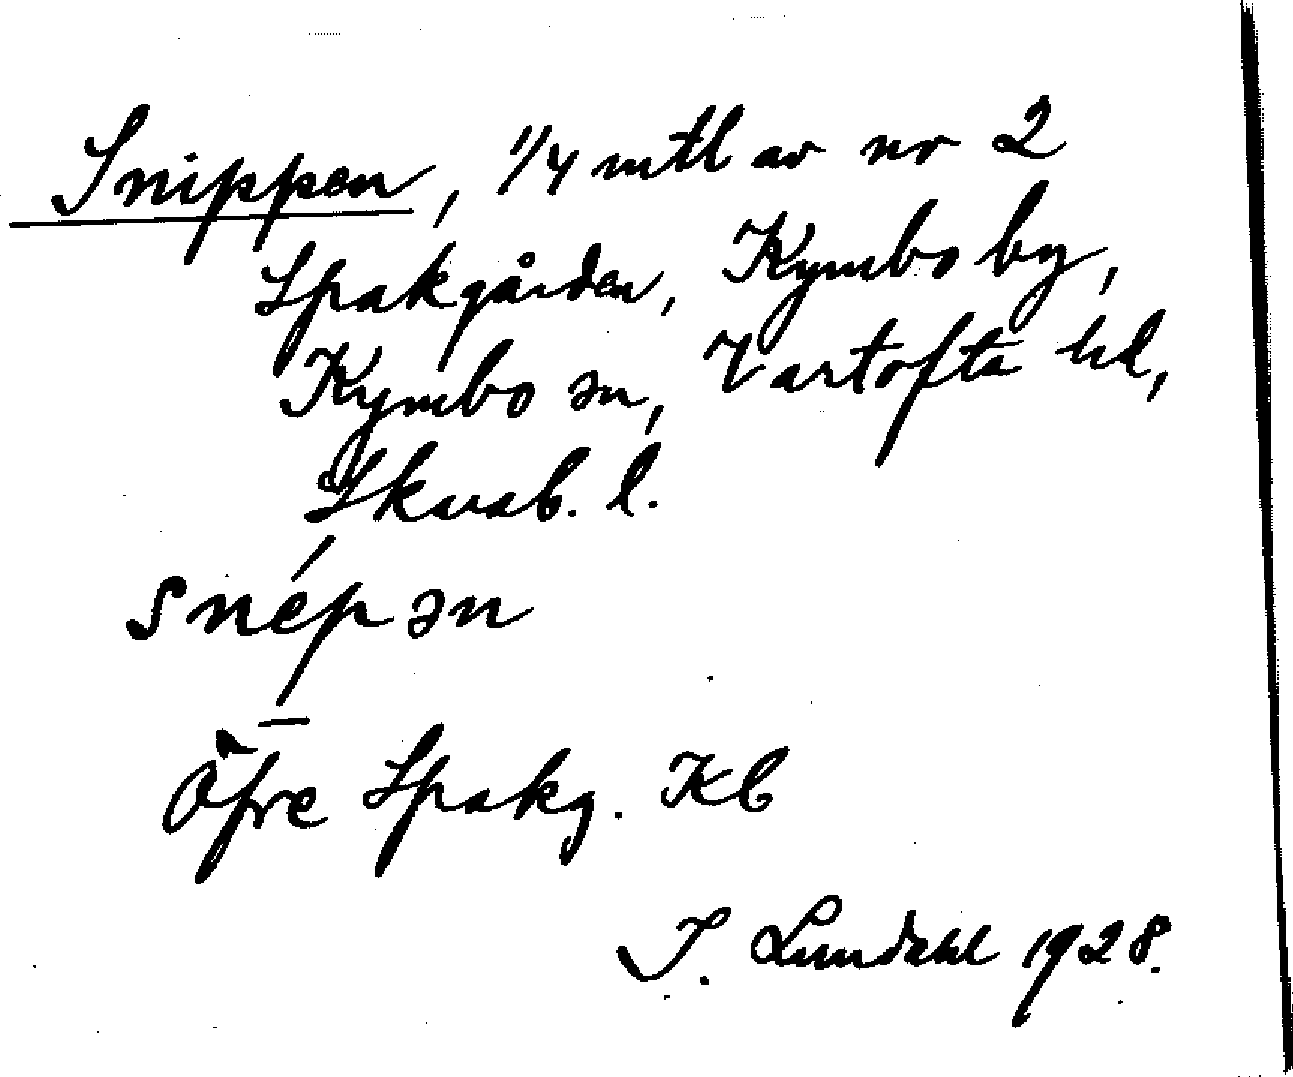 Snippen, 1/4 mtl av nr 2
Spakgården, Kymbo by,
Kymbo sn, Vartofta hd,
Skarab. l.
snépən
Öfre Spakg. Kb
I. Lundahl 1928.